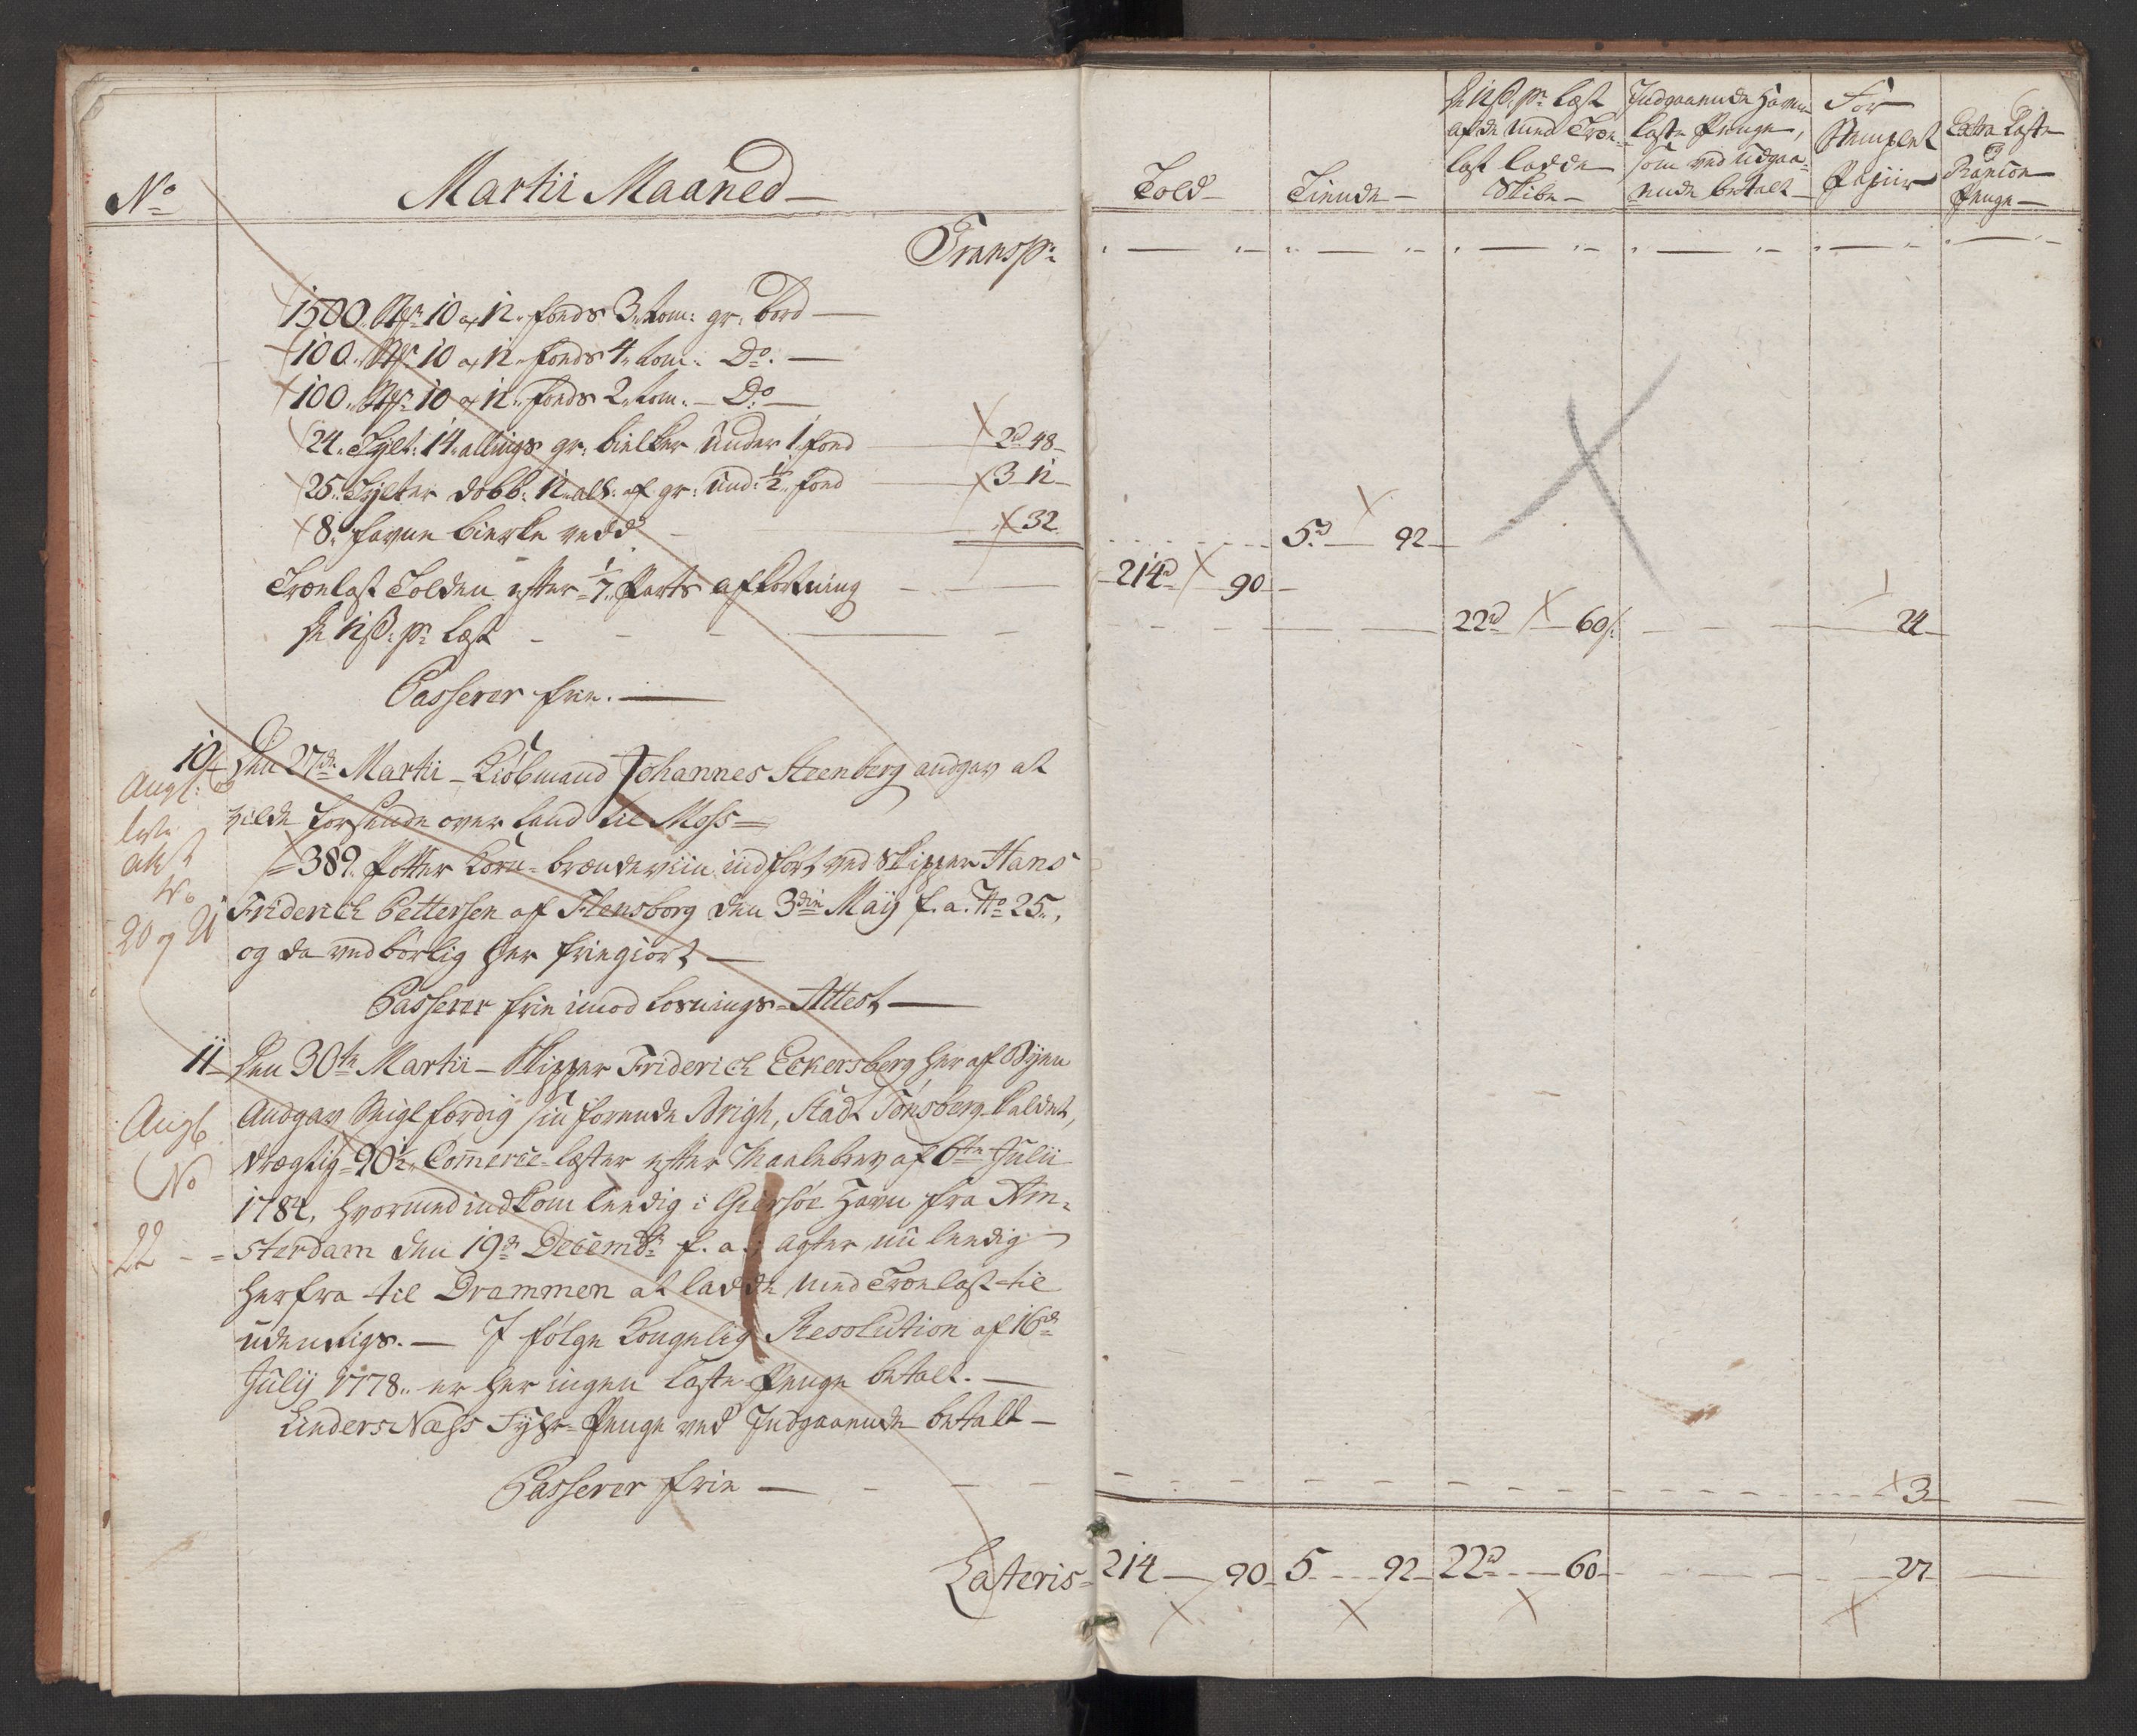 No
Martii Maaned
Transp:
1500. 10 a 12 fods 3 tom: gr: Bord
100. 10 a 12 fods 4 tom: Do.
100. 10 a 12 fods 2 tom. Do
24. Tylt: 14 allings gr: bielker under 1 fod 2 48
25. Tylter dobb: 12 all: af gr: und: 1/2 fod 3 12
8. favne birke vedd 32
Trælast Tolden efter 1/7 Parts afkortning
12 s: pr: læst
Passerer frie.
10 Den 27de Martii Kiöbmand Johannes Steenberg angav at
vilde forsende over land til Moss
389. Potter Korn-brændeviin indført ved Skipper Hans
Friderich Pettersen af Flensborg den 3die Maij f. a. No 25.,
og da vedbörlig her friegiort
Passerer frie imod losnings-Attest
Angl:
No
20 og 21
11 Den 30te Martii Skipper Friderich Eckersberg her af Byen
Angav Seiglfærdig sin förende Brigh, Stadt Tönsberg kaldet,
drægtig 90 1/2 Commerce-læster efter Maalebrev af 6te Julii
1784, hvormed indkom leedig i Giersöe Havn fra Am-
sterdam den 19de Decembr f. a.; agter nu leedig
herfra til Drammen at ladde med Trælast til
udenrigs. I fölge Kongelig Resolution af 16de
Julij 1778 er her ingen Laste Penge betalt.
LindersNæss Fyhr-Penge ved Indgaaende betalt
Passerer frie
Angl
No
22
Lateris
Told
Tiende
12 s. pr læst
af de med Træ-
last ladde
Skibe
Indgaaende Havne
laste Penge,
som ved udgaa-
ende betalt
For
Stemplet
Papiir
Extra Laste
og
Rancon
Penge
5 92
214 90
22 60 24
3
214 90 5 92 22 60 27